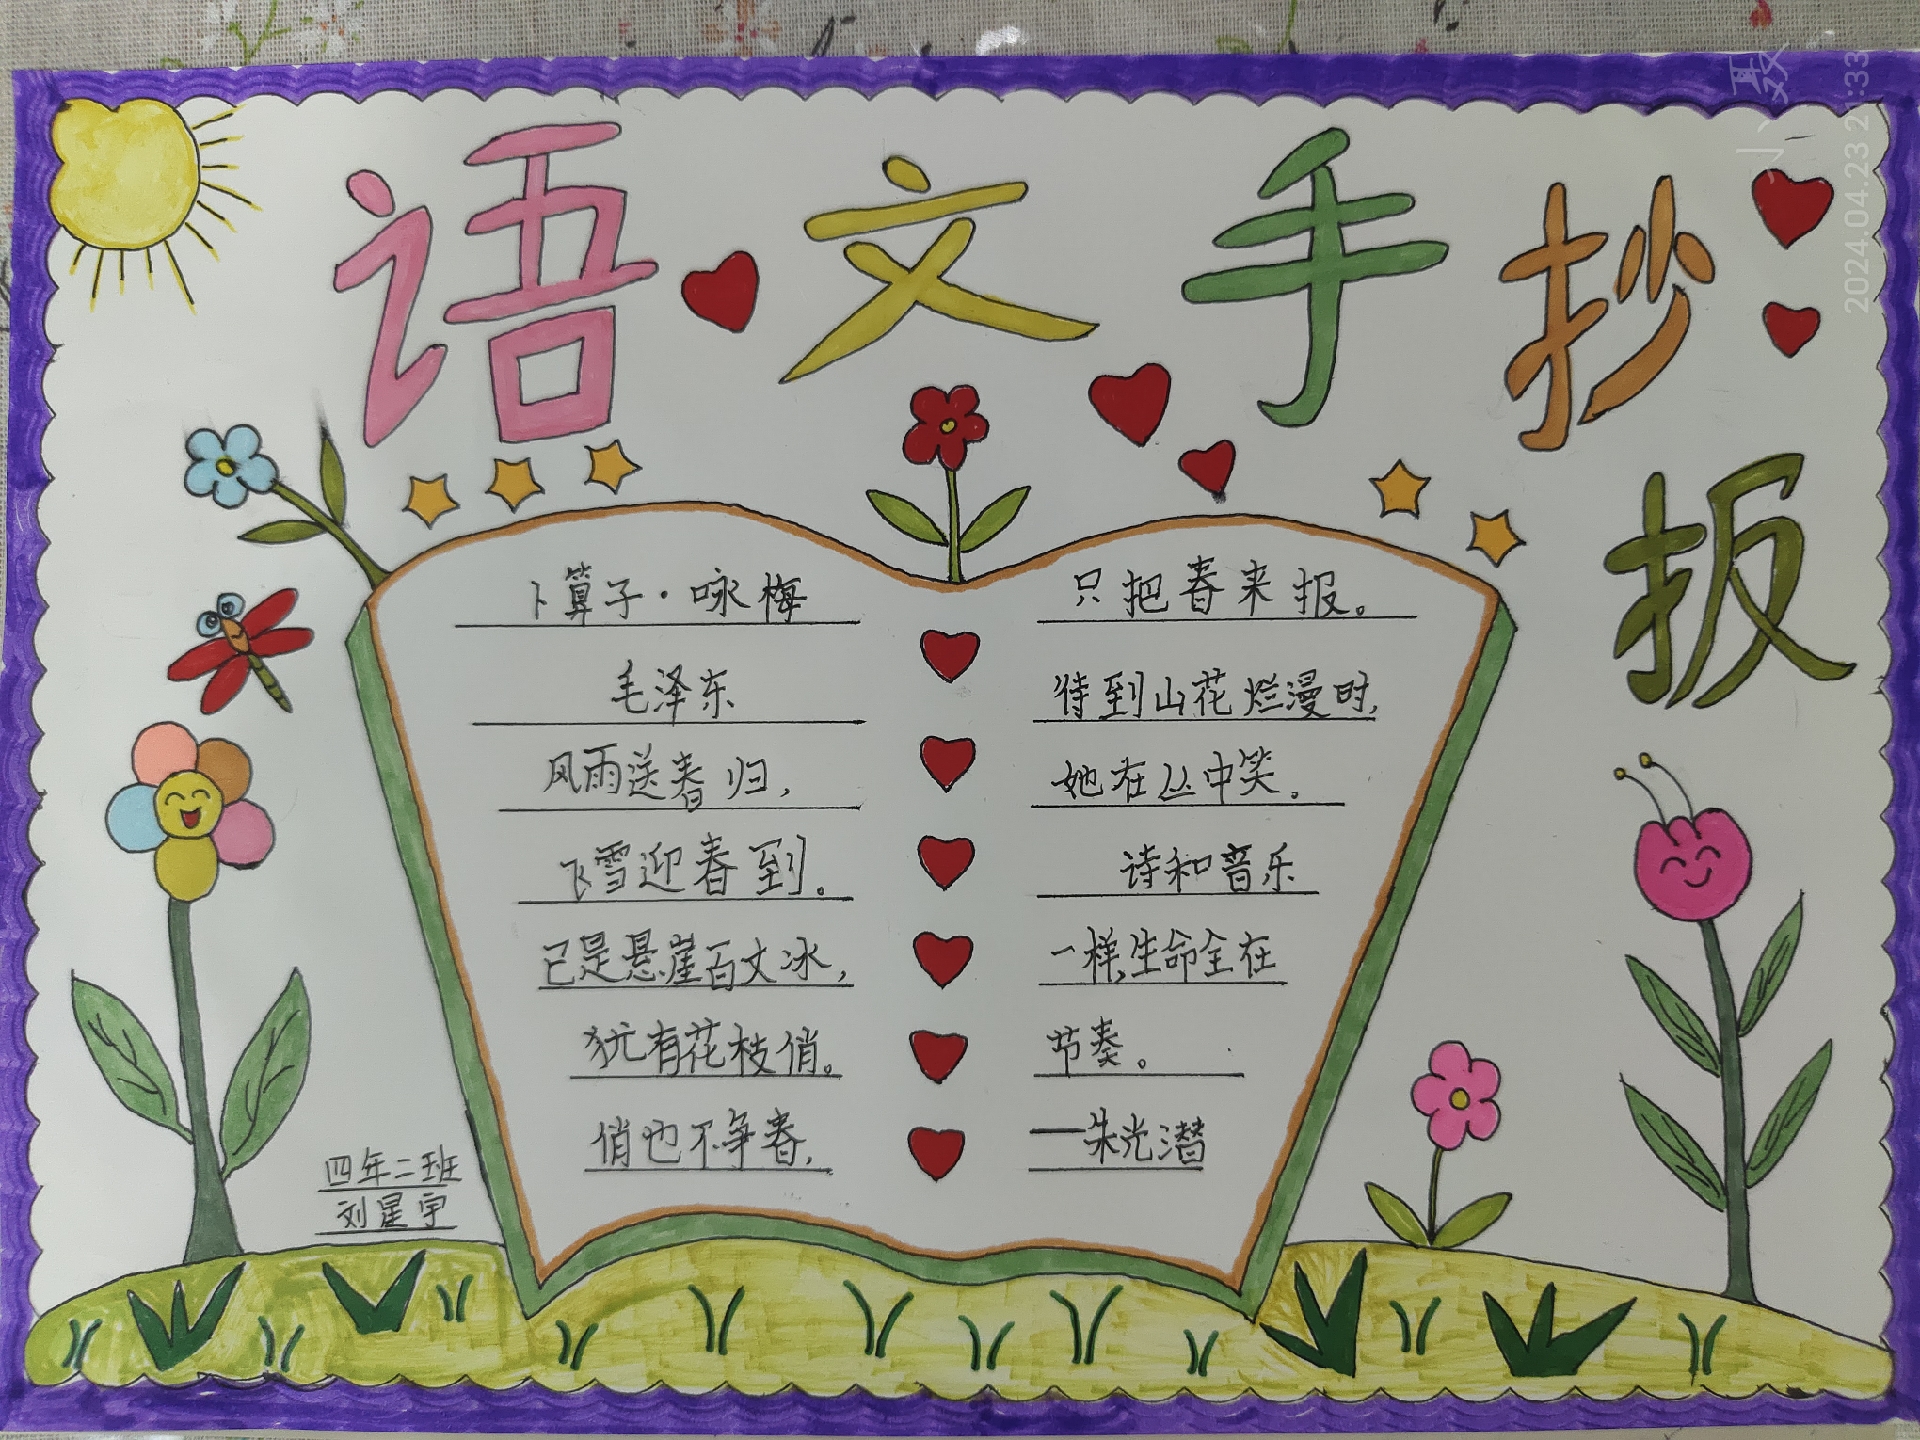 语文手抄报
卜算子·咏梅
毛泽东
风雨送春归，
飞雪迎春到。
已是悬崖百丈冰，
犹有花枝俏。
俏也不争春，
只把春来报。
待到山花烂漫时，
她在丛中笑。
诗和音乐
一样，生命全在
节奏。
——朱光潜
四年二班
刘星宇
2024.04.23